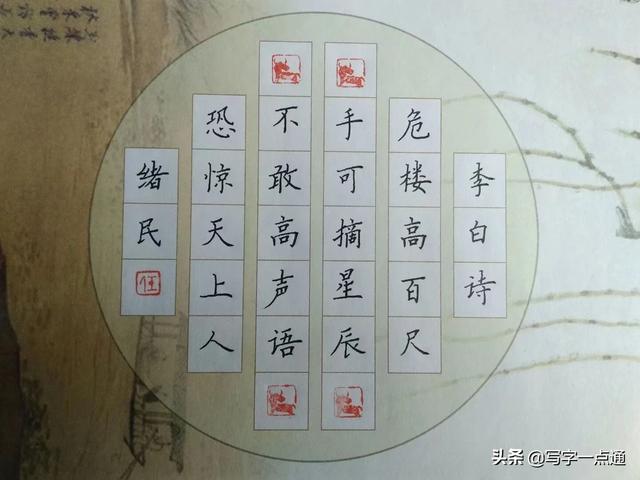 李白诗
危楼高百尺
手可摘星辰
不敢高声语
恐惊天上人
绪民
任
头条 @写字一点通